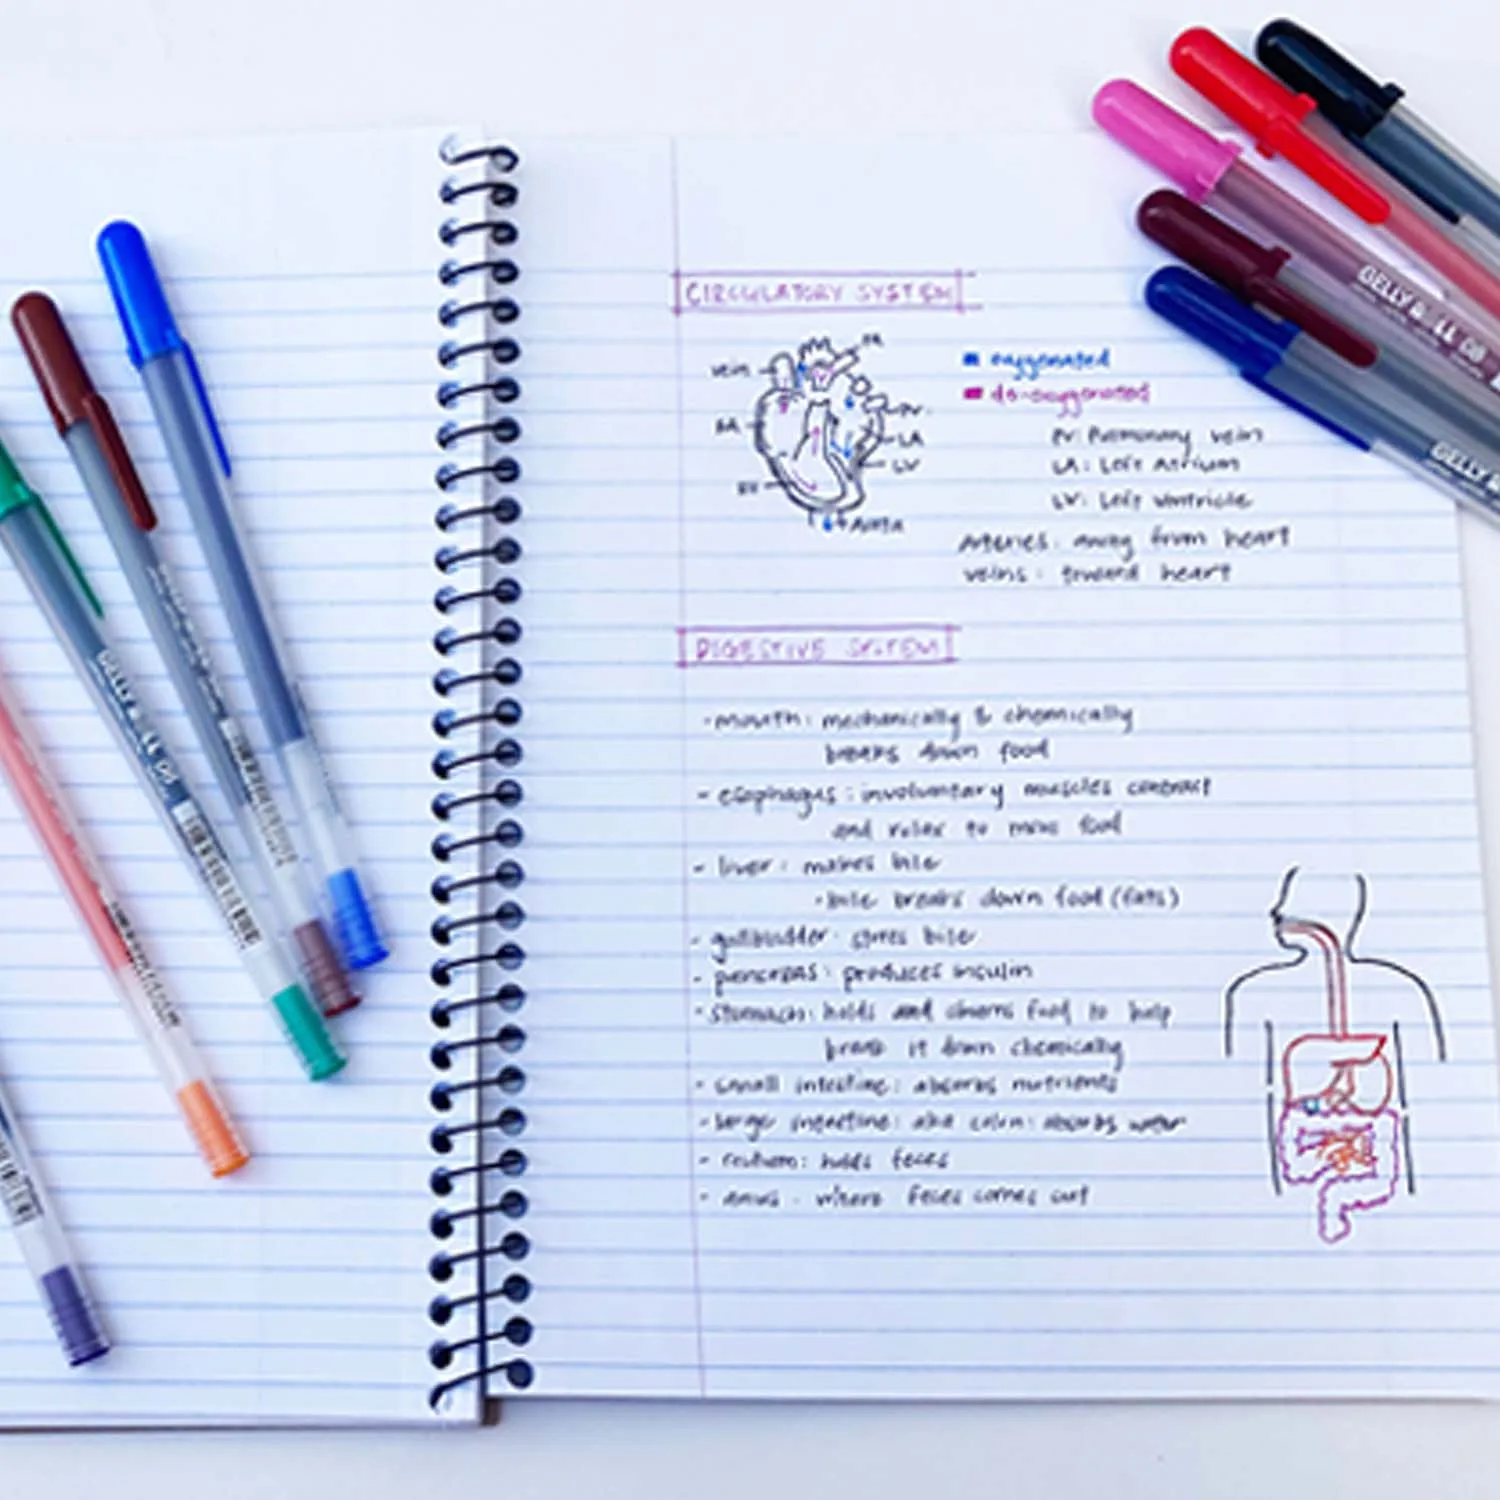 CIRCULATORY SYSTEM
vein
PA
RA
RV
PV
LA
LV
Aorta
oxygenated
de-oxygenated
PV: Pulmonary vein
LA: Left Atrium
LV: Left ventricle
Arteries: away from heart
veins: toward heart
DIGESTIVE SYSTEM
- mouth: mechanically & chemically
breaks down food
- esophagus: involuntary muscles contract
and relax to move food
- liver: makes bile
- bile breaks down food (fats)
- gallbladder: stores bile
- pancreas: produces insulin
- stomach: holds and churns food to help
break it down chemically
- small intestine: absorbs nutrients
- large intestine: aka colon: absorbs water
- rectum: holds feces
- anus: where feces comes out
GELLY ROLL 06
GELLY
GELLY ROLL 06